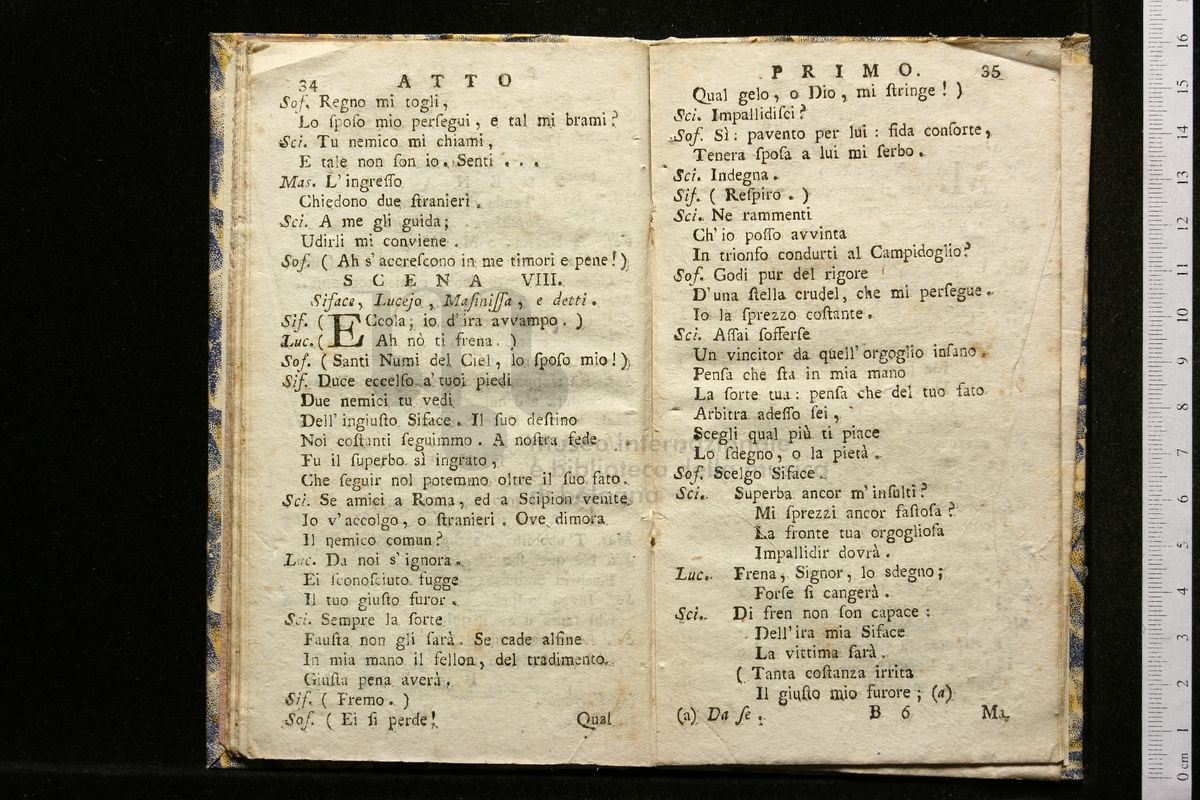 34 ATTO
Sof. Regno mi togli,
Lo ſpoſo mio perſegui, e tal mi brami?
Sci. Tu nemico mi chiami,
E tale non ſon io. Senti . . .
Mas. L'ingreſſo
Chiedono due ſtranieri.
Sci. A me gli guida;
Udirli mi conviene.
Sof. ( Ah s'accreſcono in me timori e pene! )
SCENA VIII.
Siface, Lucejo, Maſiniſſa, e detti.
Sif. ( ECcola; io d'ira avvampo. )
Luc. ( Ah nò ti frena. )
Sof. ( Santi Numi del Ciel, lo ſpoſo mio! )
Sif. Duce eccelſo a' tuoi piedi
Due nemici tu vedi
Dell'ingiuſto Siface. Il ſuo deſtino
Noi coſtanti ſeguimmo. A noſtra fede
Fu il ſuperbo sì ingrato,
Che ſeguir nol potemmo oltre il ſuo fato.
Sci. Se amici a Roma, ed a Scipion venite
Io v'accolgo, o ſtranieri. Ove dimora
Il nemico comun?
Luc. Da noi s'ignora.
Ei ſconoſciuto fugge
Il tuo giuſto furor.
Sci. Sempre la ſorte
Fauſta non gli ſarà. Se cade alfine
In mia mano il fellon, del tradimento
Giuſta pena averà.
Sif. ( Fremo. )
Sof. ( Ei ſi perde!
Qual
PRIMO. 35
Qual gelo, o Dio, mi ſtringe! )
Sci. Impallidiſci?
Sof. Sì: pavento per lui: fida conſorte,
Tenera ſpoſa a lui mi ſerbo.
Sci. Indegna.
Sif. ( Reſpiro. )
Sci. Ne rammenti
Ch'io poſſo avvinta
In trionfo condurti al Campidoglio?
Sof. Godi pur del rigore
D'una ſtella crudel, che mi perſegue.
Io la ſprezzo coſtante.
Sci. Aſſai ſofferſe
Un vincitor da quell'orgoglio inſano.
Penſa che ſta in mia mano
La ſorte tua: penſa che del tuo fato
Arbitra adeſſo ſei,
Scegli qual più ti piace
Lo ſdegno, o la pietà.
Sof. Scelgo Siface.
Sci. Superba ancor m'inſulti?
Mi ſprezzi ancor faſtoſa?
La fronte tua orgoglioſa
Impallidir dovrà.
Luc. Frena, Signor, lo ſdegno;
Forſe ſi cangerà.
Sci. Di fren non ſon capace:
Dell'ira mia Siface
La vittima ſarà.
( Tanta coſtanza irrita
Il giuſto mio furore; (a)
(a) Da ſe.
B 6
Ma
museo internazionale
e biblioteca della musica
0 cm 1 2 3 4 5 6 7 8 9 10 11 12 13 14 15 16